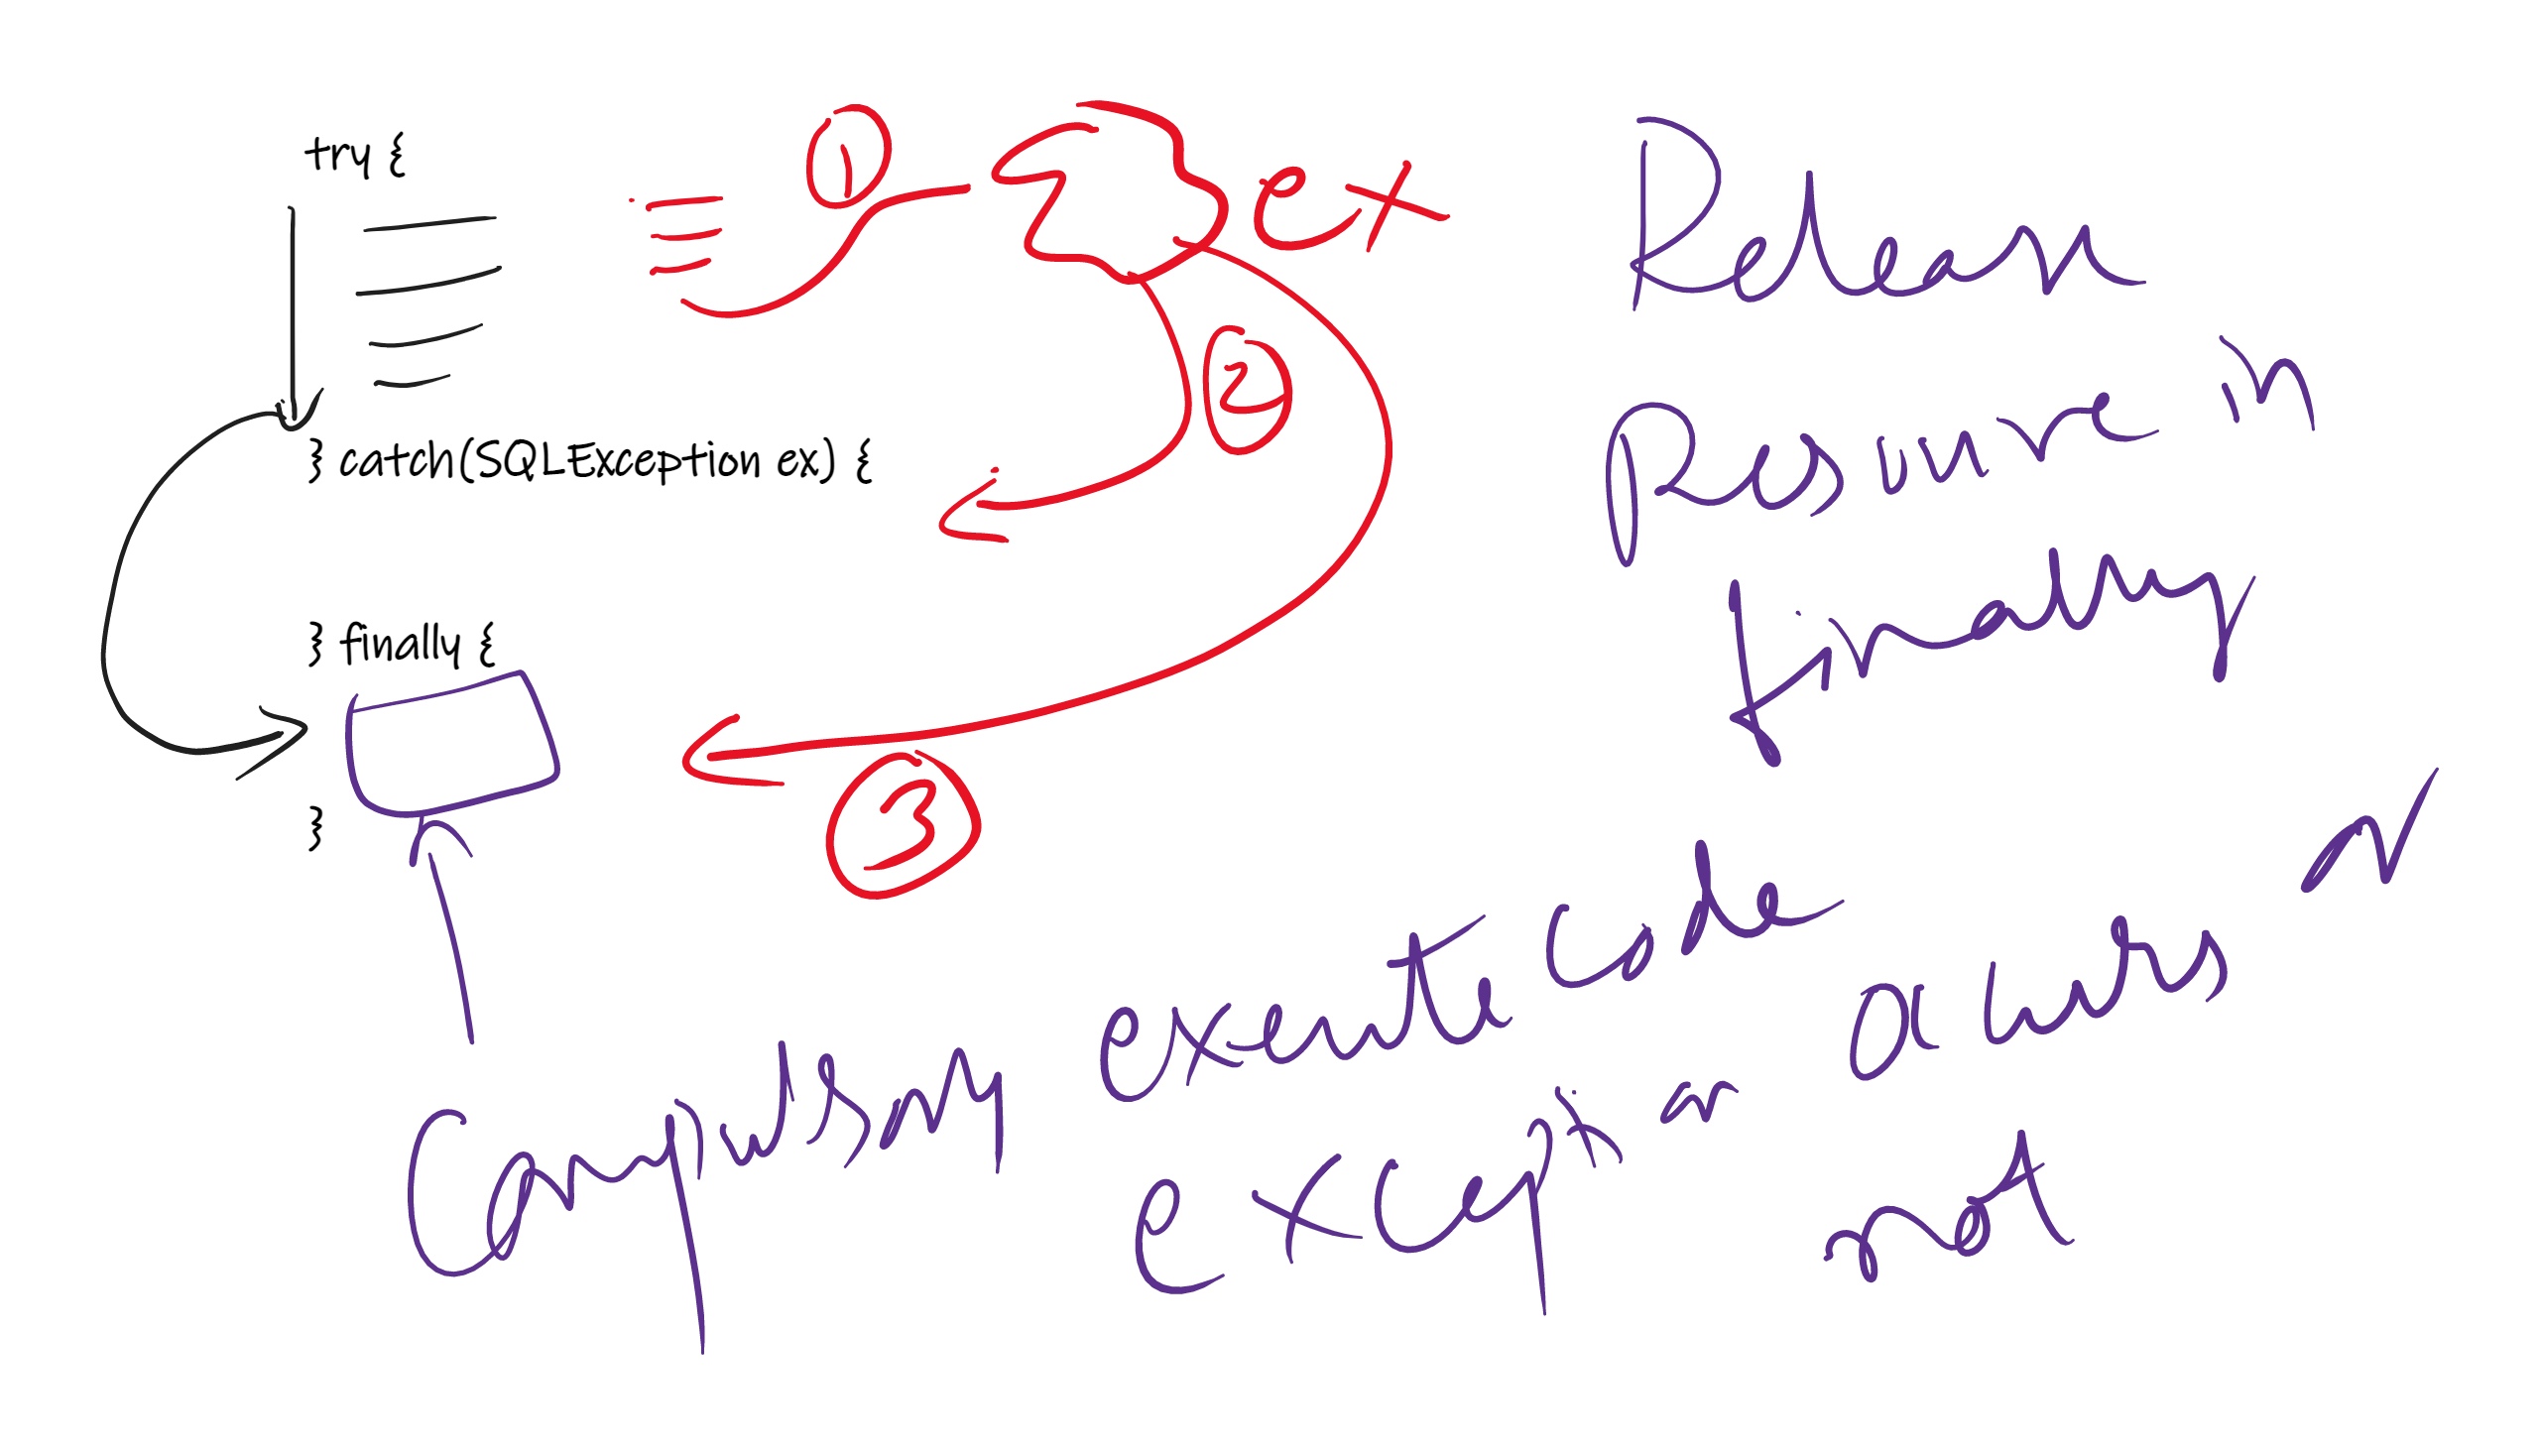 try {
} catch(SQLException ex) {
} finally {
}
1
ex
2
3
Release
Resource in
finally
Compulsory execute code
exception occurs or
not